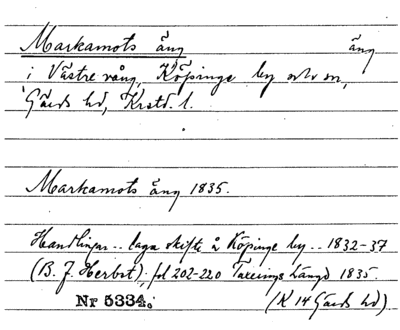 Markamots äng äng
i Västre vång, Köpinge by och sn,
Gärds hd, Krstd. l.
Markamots äng 1835.
Handlingar .. laga skifte å Köpinge by .. 1832-37
(B. J. Herbst): fol 202-220 Taxerings Längd 1835.
Nr 5334. (K 14 Gärds hd)